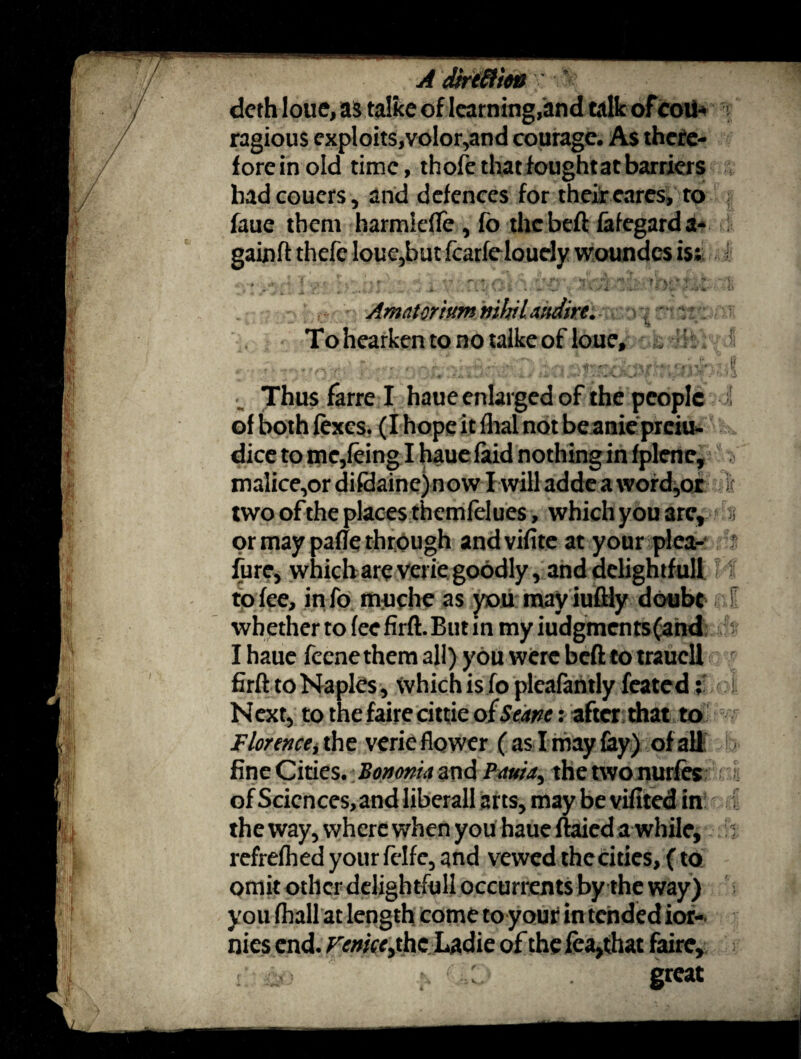 A direction
deth loue, as talke of learning,and talk of cou-
ragious exploits,volor,and courage. As there-
fore in old time, thoſe that fought at barriers
had couers, and defences for their eares, to
ſaue them harmleſſe, ſo the beſt ſafegard a-
gainſt theſe loue,but ſcarſe louely woundes is:
Amatorium nihil audire.
To hearken to no talke of loue,
Thus farre I haue enlarged of the people
of both ſexes. (I hope it ſhal not be anie preiu-
dice to me,ſeing I haue ſaid nothing in ſplene,
malice,or diſdaine)now I will adde a word,or
two of the places themſelues, which you are,
or may paſſe through and viſite at your plea-
ſure, which are verie goodly, and delightfull
to ſee, in ſo muche as you may iuſtly doubt
whether to ſee firſt. But in my iudgments(and
I haue ſeene them all) you were beſt to trauell
firſt to Naples, which is ſo pleaſantly ſeated:
Next, to the faire cittie of Seane: after that to
Florence, the verie flower (as I may ſay) of all
fine Cities. Bononia and Pauia, the two nurſes
of Sciences,and liberall arts, may be viſited in
the way, where when you haue ſtaied a while,
refreſhed your ſelfe, and vewed the cities, (to
omit other delightfull occurrents by the way)
you ſhall at length come to your intended ior-
nies end. Venice,the Ladie of the ſea,that faire,
great